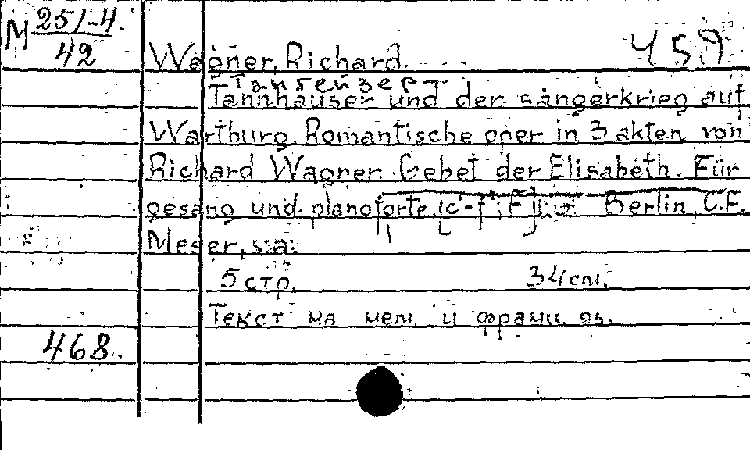 M 251-4.
42
Wagner, Richard. 459
Тангейзер
Tannhäuser und der sängerkrieg auf
Wartburg. Romantische oper in 3 akten von
Richard Wagner. Gebet der Elisabeth. Für
gesang und pianoforte. Berlin, C.F.
Meser, s.a.
5 стр. 34 см.
Текст на нем. и франц. яз.
468.